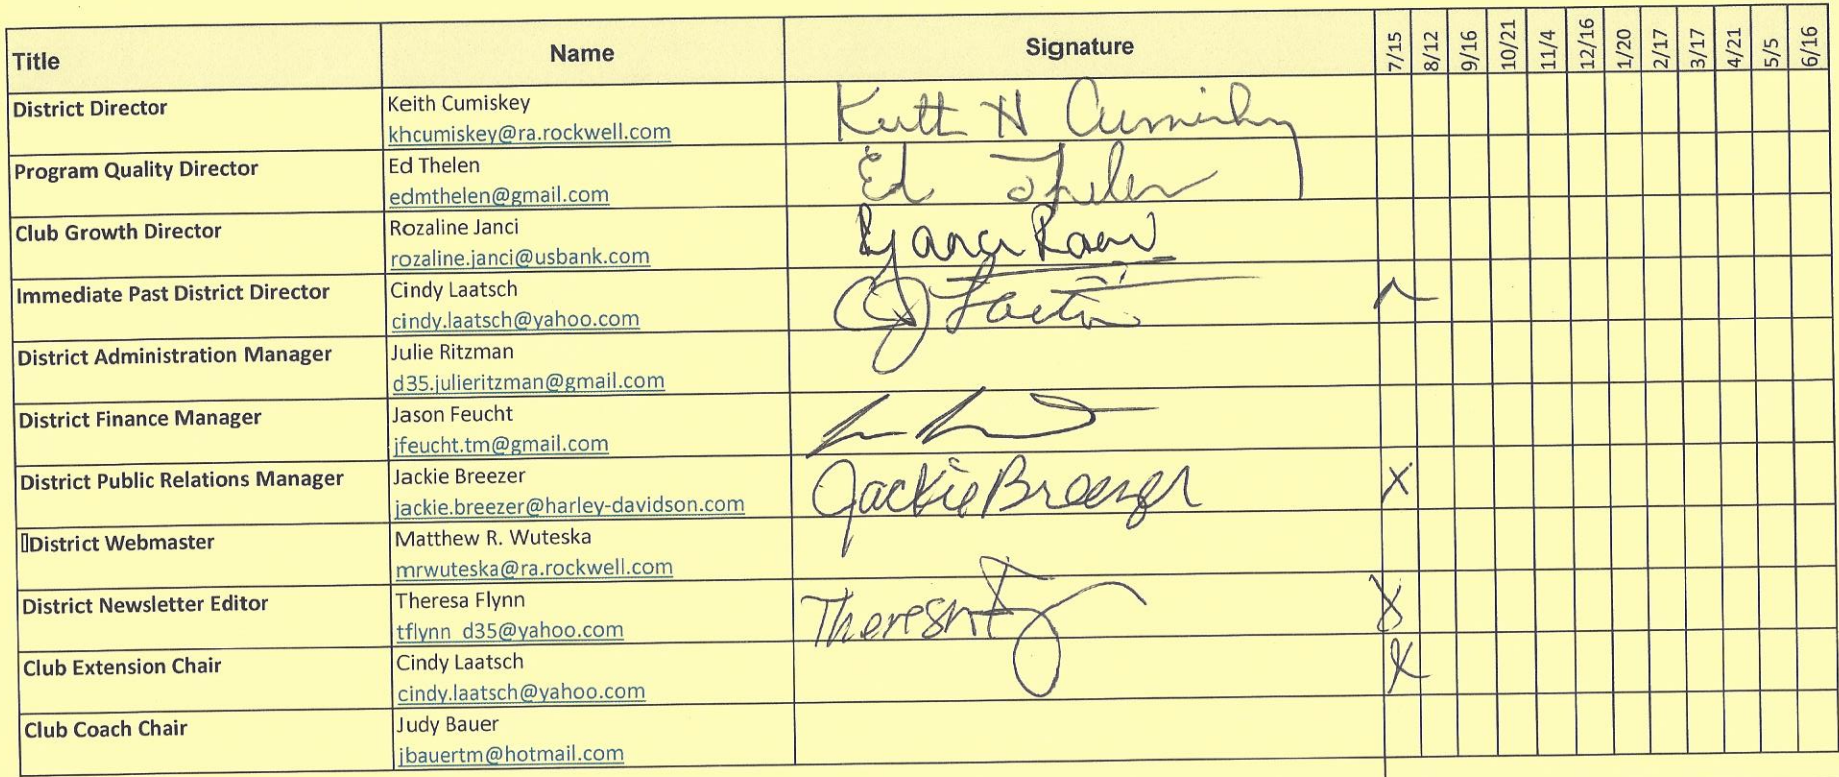 Title Name Signature 7/15 8/12 9/16 10/21 11/4 12/16 1/20 2/17 3/17 4/21 5/5 6/16
District Director Keith Cumiskey Keith H Cumiskey
khcumiskey@ra.rockwell.com
Program Quality Director Ed Thelen Ed Thelen
edmthelen@gmail.com
Club Growth Director Rozaline Janci
rozaline.janci@usbank.com
Immediate Past District Director Cindy Laatsch
cindy.laatsch@yahoo.com
District Administration Manager Julie Ritzman
d35.julieritzman@gmail.com
District Finance Manager Jason Feucht
jfeucht.tm@gmail.com
District Public Relations Manager Jackie Breezer Jackie Breezer X
jackie.breezer@harley-davidson.com
District Webmaster Matthew R. Wuteska
mrwuteska@ra.rockwell.com
District Newsletter Editor Theresa Flynn Theresa X
tflynn_d35@yahoo.com
Club Extension Chair Cindy Laatsch X
cindy.laatsch@yahoo.com
Club Coach Chair Judy Bauer
jbauertm@hotmail.com